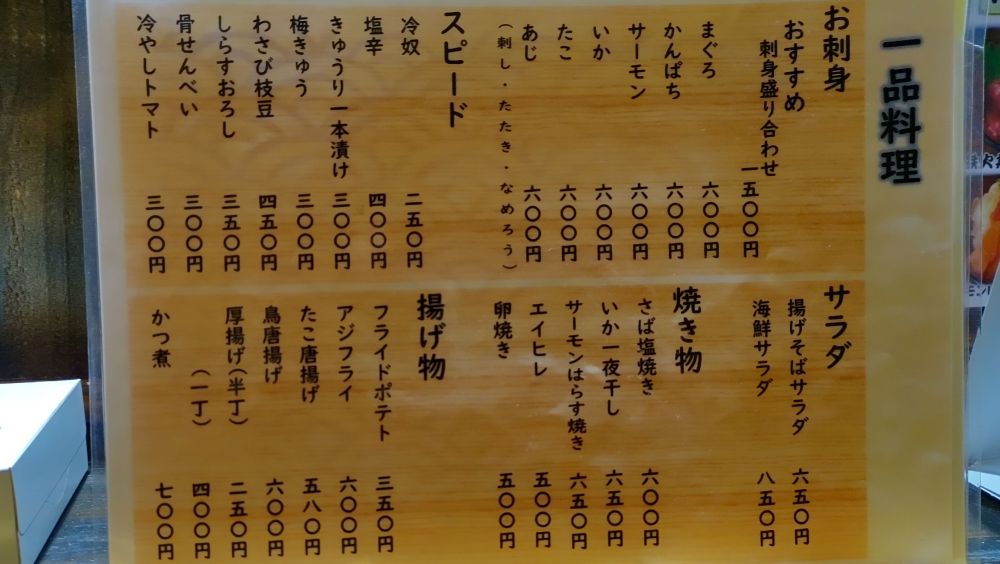 一品料理
お刺身
おすすめ
刺身盛り合わせ 一五〇〇円
まぐろ 六〇〇円
かんぱち 六〇〇円
サーモン 六〇〇円
いか 六〇〇円
たこ 六〇〇円
あじ 六〇〇円
(刺し・たたき・なめろう)
スピード
冷奴 二五〇円
塩辛 四〇〇円
きゅうり一本漬け 三〇〇円
梅きゅう 三〇〇円
わさび枝豆 四五〇円
しらすおろし 三五〇円
骨せんべい 三〇〇円
冷やしトマト 三〇〇円
サラダ
揚げそばサラダ 六五〇円
海鮮サラダ 八五〇円
焼き物
さば塩焼き 六〇〇円
いか一夜干し 六五〇円
サーモンはらす焼き 六五〇円
エイヒレ 五〇〇円
卵焼き 五〇〇円
揚げ物
フライドポテト 三五〇円
アジフライ 六〇〇円
たこ唐揚げ 五八〇円
鳥唐揚げ 六〇〇円
厚揚げ(半丁) 二五〇円
(一丁) 四〇〇円
かつ煮 七〇〇円